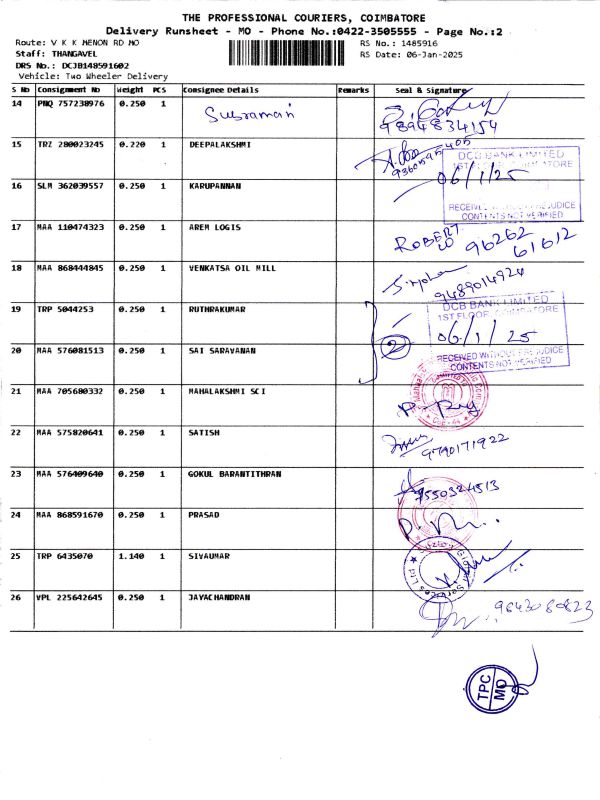 THE PROFESSIONAL COURIERS, COIMBATORE
Delivery Runsheet - MO - Phone No.:0422-3505555 - Page No.:2
Route: V K K MENON RD MO
RS No.: 1485916
Staff: THANGAVEL
RS Date: 06-Jan-2025
DRS No.: DCJB148591602
Vehicle: Two Wheeler Delivery
S No Consignment No Weight PCS Consignee Details Remarks Seal & Signature
14 PNQ 757238976 0.250 1 Subramani
9894834154
15 TRZ 280023245 0.220 1 DEEPALAKSHMI
9360595405
DCB BANK LIMITED
1ST FLOOR, COIMBATORE
06/1/25
RECEIVED WITHOUT PREJUDICE
CONTENTS NOT VERIFIED
16 SLM 362039557 0.250 1 KARUPANNAN
17 MAA 110474323 0.250 1 AREM LOGIS
ROBERT
96262
61612
18 MAA 868444845 0.250 1 VENKATSA OIL MILL
9489014924
19 TRP 5044253 0.250 1 RUTHRAKUMAR
DCB BANK LIMITED
1ST FLOOR, COIMBATORE
06/1/25
RECEIVED WITHOUT PREJUDICE
CONTENTS NOT VERIFIED
2
20 MAA 576081513 0.250 1 SAI SARAVANAN
21 MAA 705680332 0.250 1 MAHALAKSHMI SCI
22 MAA 575820641 0.250 1 SATISH
9790171922
23 MAA 576409640 0.250 1 GOKUL BARANTITHRAN
9550324513
24 MAA 868591670 0.250 1 PRASAD
25 TRP 6435070 1.140 1 SIVAUMAR
26 VPL 225642645 0.250 1 JAYACHANDRAN
9643080823
TPC
MO